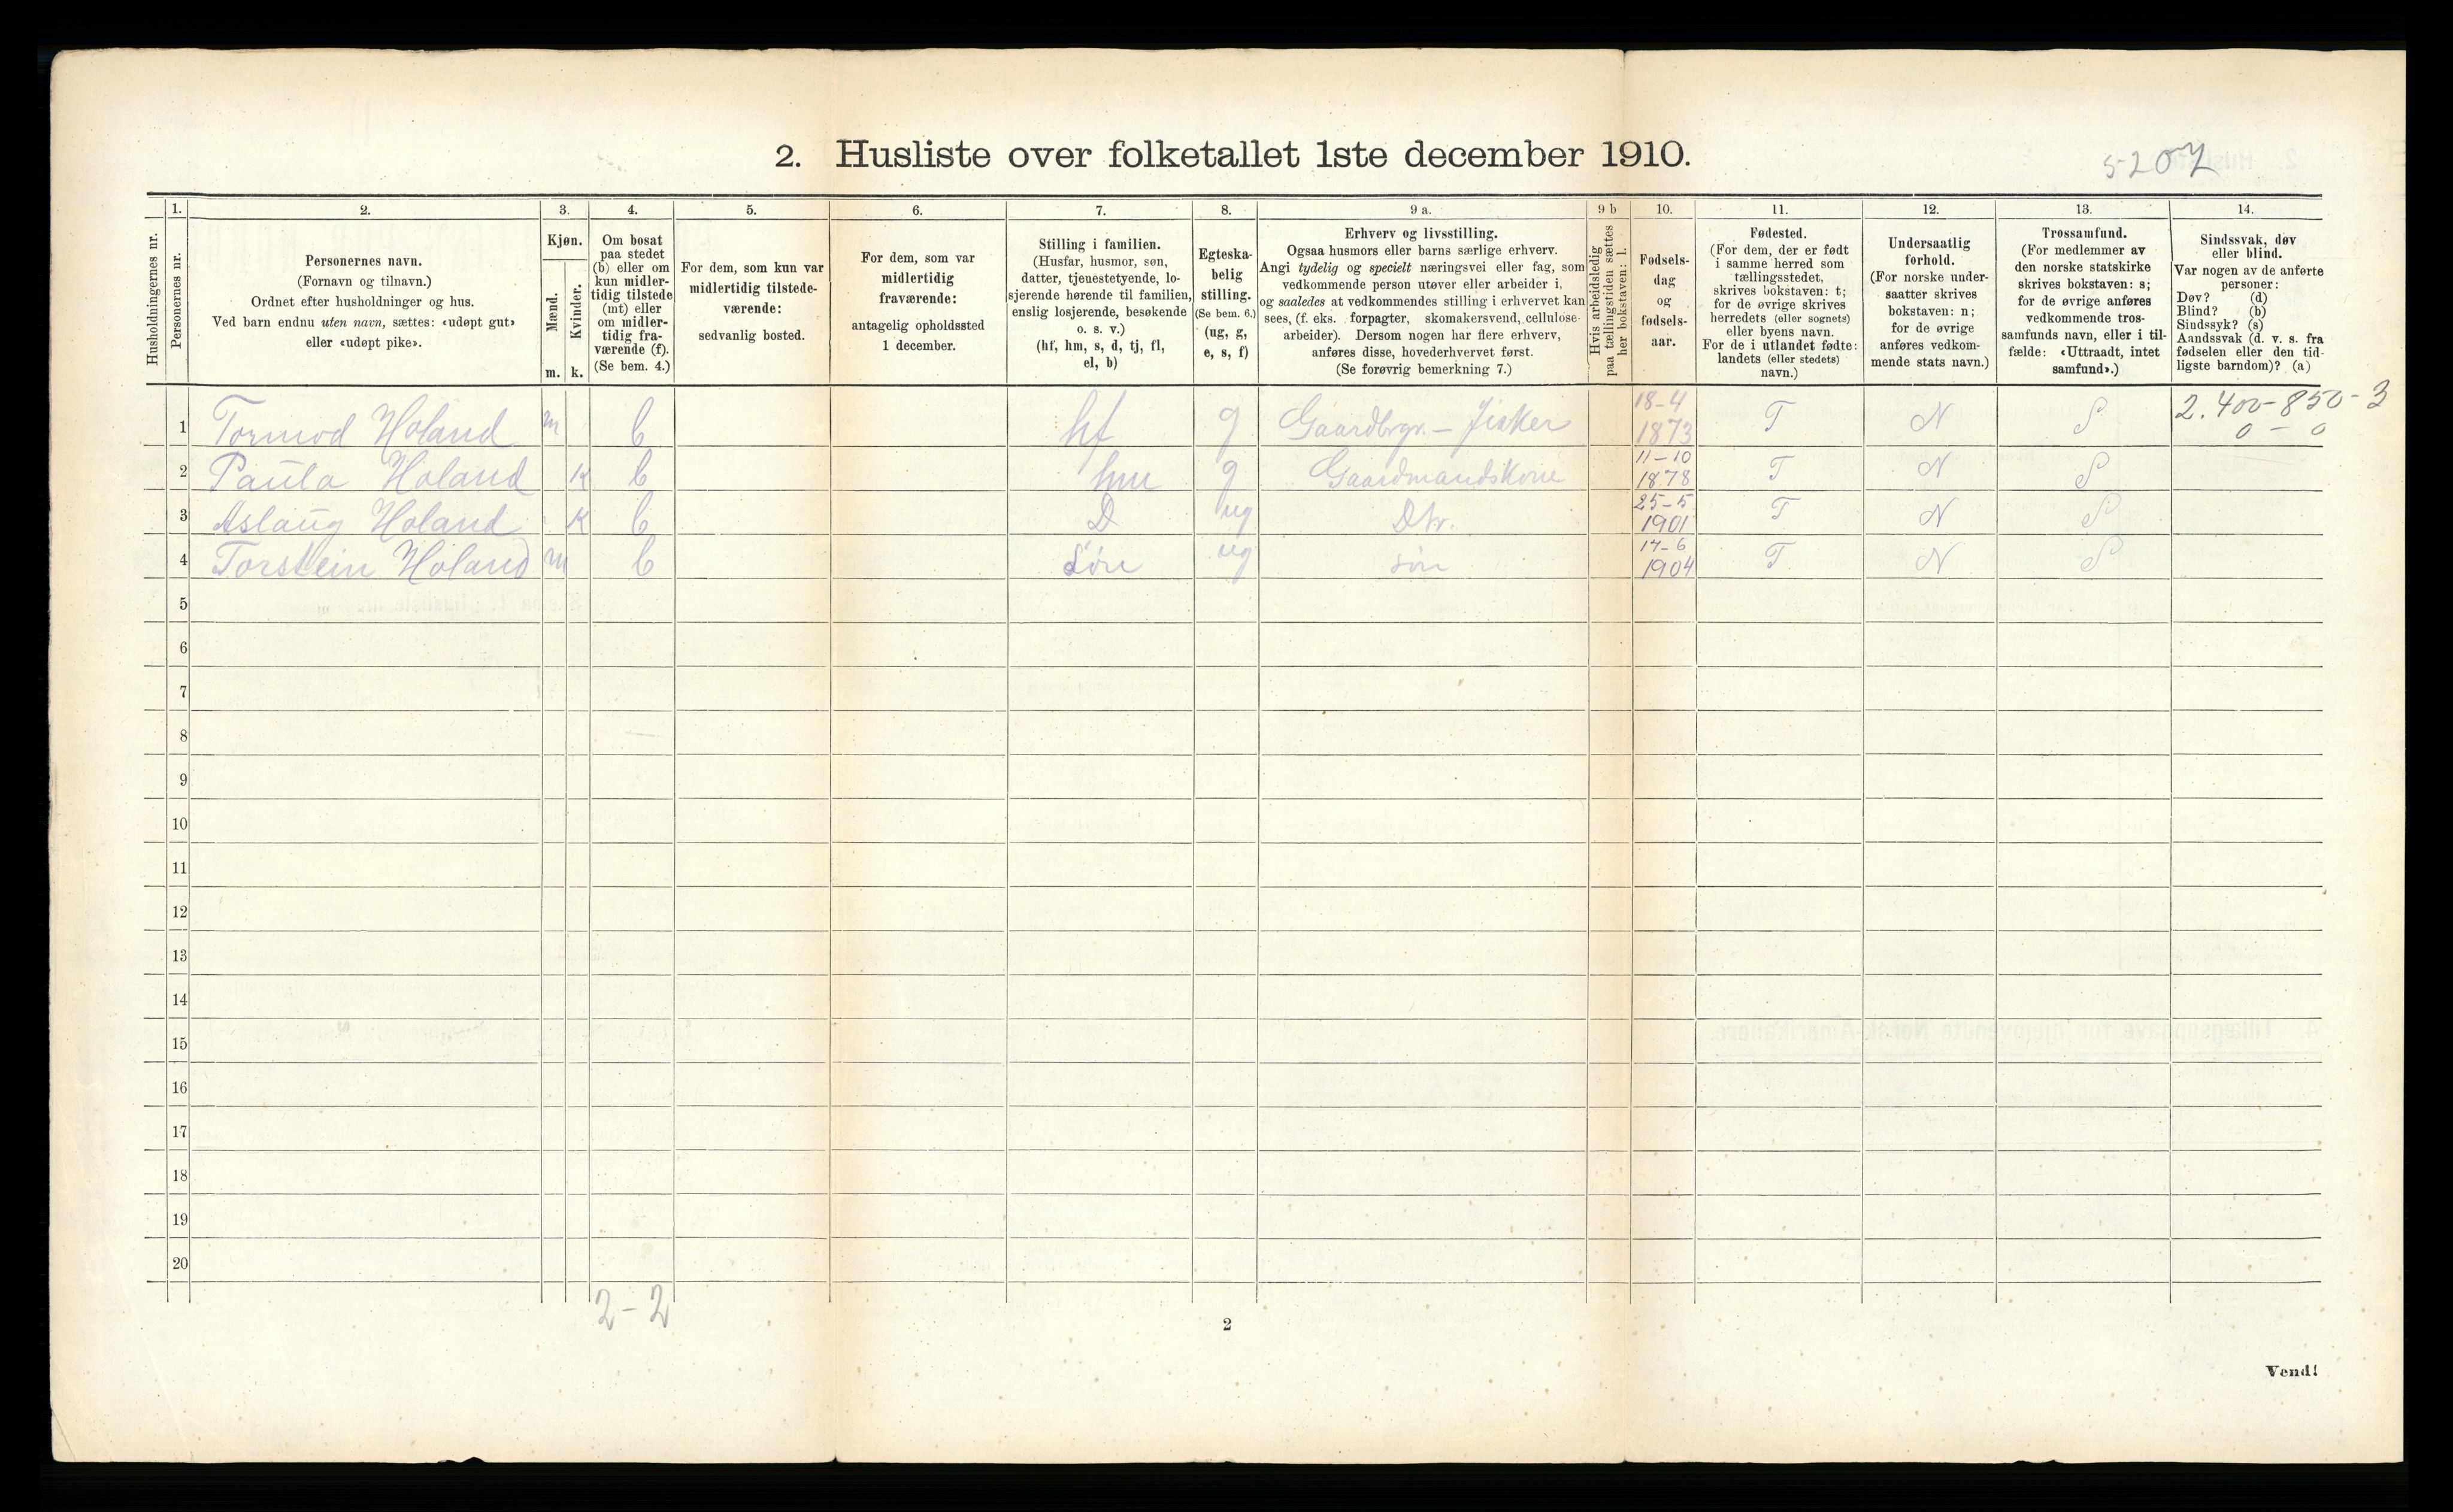 2. Husliste over folketallet 1ste december 1910.
5207
Husholdningernes nr.
1.
Personernes nr.
2.
Personernes navn.
(Fornavn og tilnavn.)
Ordnet efter husholdninger og hus.
Ved barn endnu uten navn, sættes: «udøpt gut»
eller «udøpt pike».
3.
Kjøn.
Mænd.
Kvinder.
m. k.
4.
Om bosat
paa stedet
(b) eller om
kun midler-
tidig tilstede
(mt) eller
om midler-
tidig fra-
værende (f).
(Se bem. 4.)
5.
For dem, som kun var
midlertidig tilstede-
værende:
sedvanlig bosted.
6.
For dem, som var
midlertidig
fraværende:
antagelig opholdssted
1 december.
7.
Stilling i familien.
(Husfar, husmor, søn,
datter, tjenestetyende, lo-
sjerende hørende til familien,
enslig losjerende, besøkende
o. s. v.)
(hf, hm, s, d, tj, fl,
el, b)
8.
Egteska-
belig
stilling.
(Se bem. 6.)
(ug, g,
e, s, f)
9 a.
Erhverv og livsstilling.
Ogsaa husmors eller barns særlige erhverv.
Angi tydelig og specielt næringsvei eller fag, som
vedkommende person utøver eller arbeider i,
og saaledes at vedkommendes stilling i erhvervet kan
sees, (f. eks. forpagter, skomakersvend, cellulose-
arbeider). Dersom nogen har flere erhverv,
anføres disse, hovederhvervet først.
(Se forøvrig bemerkning 7.)
9 b
Hvis arbeidsledig
paa tællingstiden sættes
her bokstaven: l.
10.
Fødsels-
dag
og
fødsels-
aar.
11.
Fødested.
(For dem, der er født
i samme herred som
tællingsstedet,
skrives bokstaven: t;
for de øvrige skrives
herredets (eller sognets)
eller byens navn.
For de i utlandet fødte:
landets (eller stedets)
navn.)
12.
Undersaatlig
forhold.
(For norske under-
saatter skrives
bokstaven: n;
for de øvrige
anføres vedkom-
mende stats navn.)
13.
Trossamfund.
(For medlemmer av
den norske statskirke
skrives bokstaven: s;
for de øvrige anføres
vedkommende tros-
samfunds navn, eller i til-
fælde: «Uttraadt, intet
samfund».)
14.
Sindssvak, døv
eller blind.
Var nogen av de anførte
personer:
Døv? (d)
Blind? (b)
Sindssyk? (s)
Aandssvak (d. v. s. fra
fødselen eller den tid-
ligste barndom)? (a)
1 Tormod Holand m b hf g Gaardbrgr. - Fisker 18-4 1873 T N S 2.400-850-3
0 - 0
2 Paula Holand K b hm g Gaardmandskone 11-10 1878 T N S
3 Aslaug Holand K b D ug Dtr. 25-5 1901 T N S
4 Torstein Holand m b Søn ug søn 14-6 1904 T N S
5
6
7
8
9
10
11
12
13
14
15
16
17
18
19
20
2-2
2
Vend!